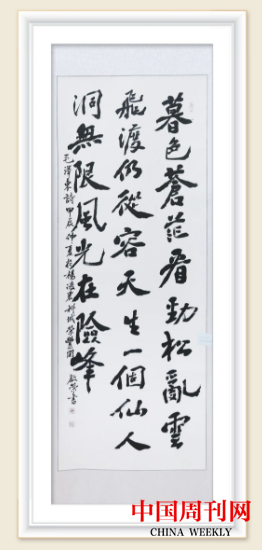 暮色蒼茫看勁松亂雲
飛渡仍從容天生一個仙人
洞無限風光在險峯
毛澤東詩甲辰仲夏
書
中国周刊网
CHINA WEEKLY